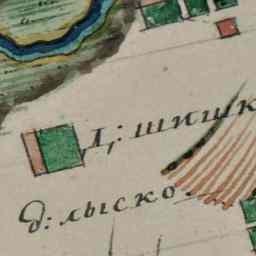 Д: шишк
д: лыско